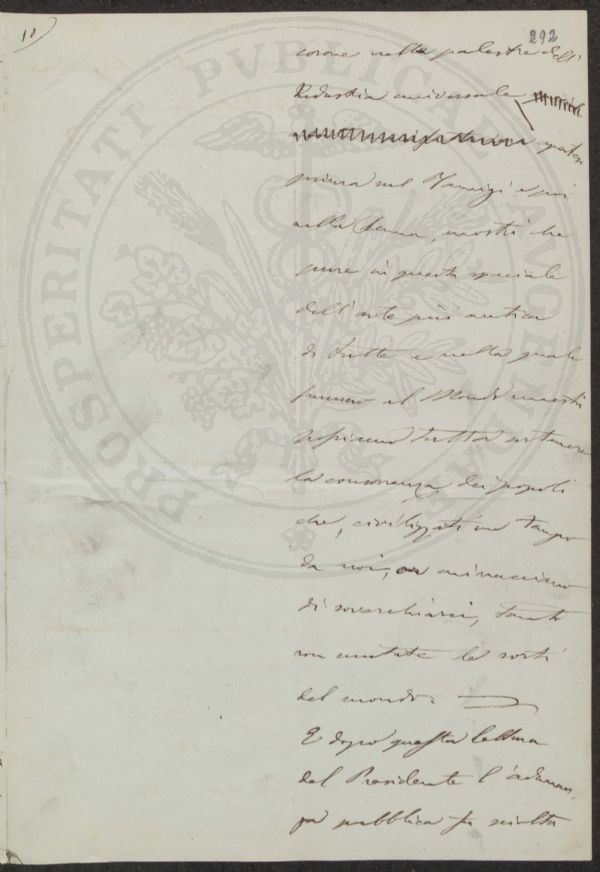 11)
292
come nelle palestre dell'
Industria universale
aperte
prima sul Tamigi e poi
nella Senna, mostri che
pure in questa speciale
dell'arte più antica
di tutte e nella quale
fummo al Mondo maestri
possiamo tuttora sostenere
la concorrenza dei popoli
che, civilizzati un tempo
da noi, or minacciano
di soverchiarci, tanto
son mutate le sorti
del mondo.
E dopo questa lettura
del Presidente l'adunan-
za pubblica fu sciolta
PROSPERITATI PUBLICAE AUGENDAE